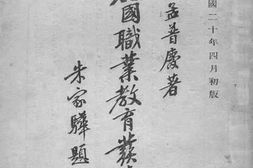 國二十年四月初版
孟普慶著
國職業教育發
朱家驊題